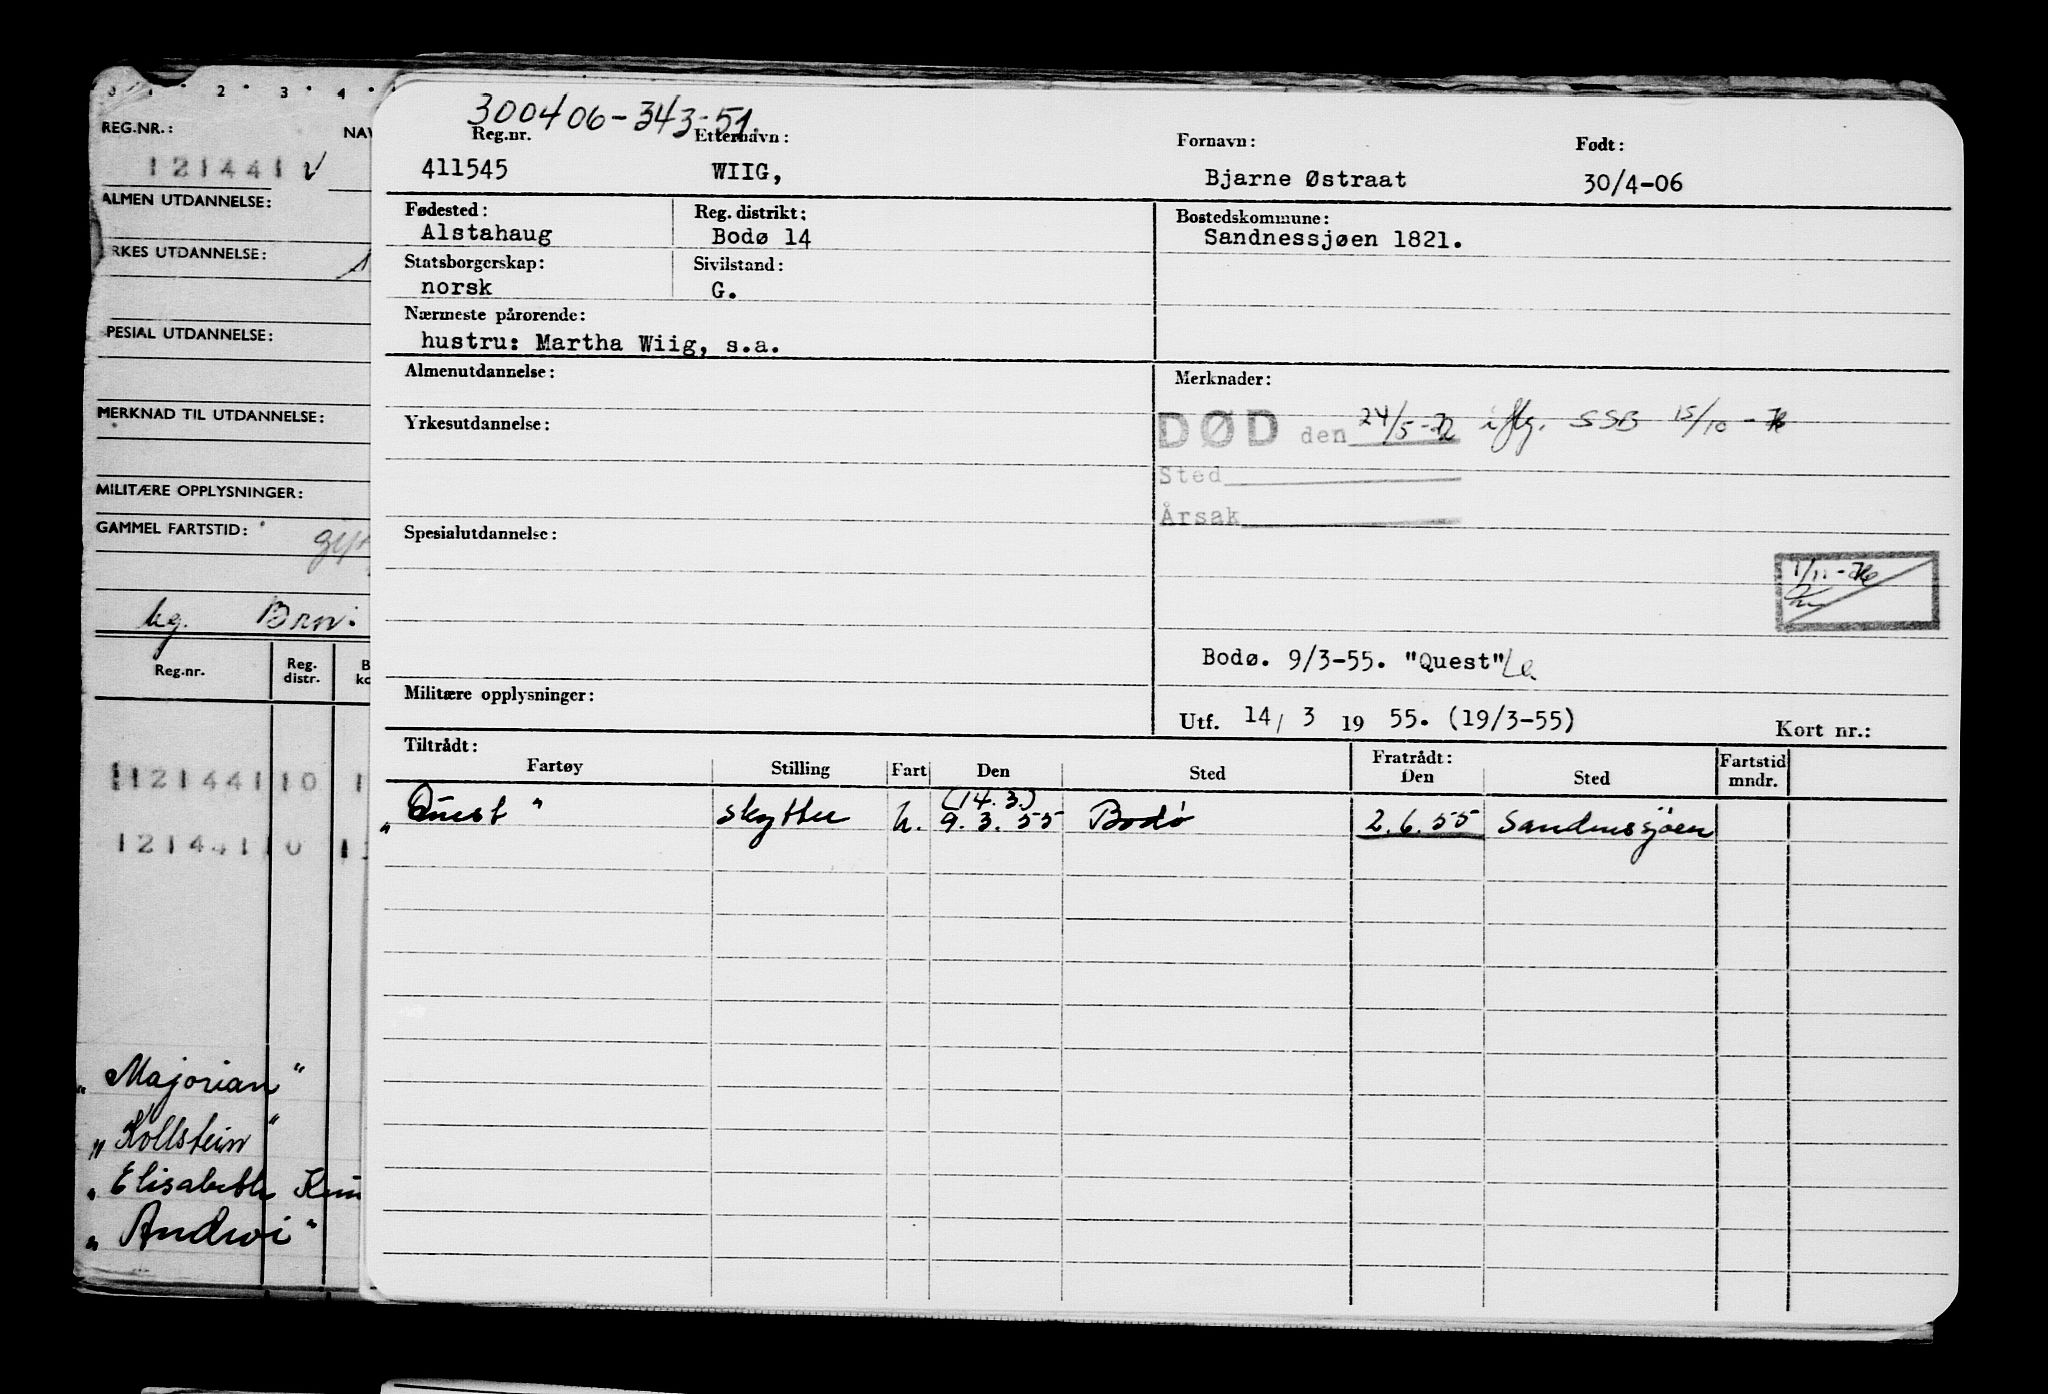 0 1 2 3 4
REG.NR.:
NAV
121441
ALMEN UTDANNELSE:
RKES UTDANNELSE:
PESIAL UTDANNELSE:
MERKNAD TIL UTDANNELSE:
MILITÆRE OPPLYSNINGER:
GAMMEL FARTSTID:
Reg.nr.
Reg. distr.
B
ko
121441 0 1
121441 0 1
"Majorian"
"Kollstein"
"Elisabeth
"Andwi"
300406-343-51
Reg.nr. Etternavn: Fornavn: Født:
411545 WIIG, Bjarne Østraat 30/4-06
Fødested: Reg. distrikt: Bostedskommune:
Alstahaug Bodø 14 Sandnessjøen 1821.
Statsborgerskap: Sivilstand:
norsk G.
Nærmeste pårørende:
hustru: Martha Wiig, s.a.
Almenutdannelse: Merknader:
DØD den 24/5-72 iflg. SSB 15/10-76
Yrkesutdannelse:
Sted
Årsak
Spesialutdannelse:
1/11-76
Bodø. 9/3-55. "Quest"
Militære opplysninger:
Utf. 14/ 3 19 55. (19/3-55) Kort nr.:
Tiltrådt: Fratrådt: Fartstid
Fartøy Stilling Fart Den Sted Den Sted mndr.
(14.3.)
"Quest" skytter h. 9.3.55 Bodö 2.6.55 Sandnessjöen